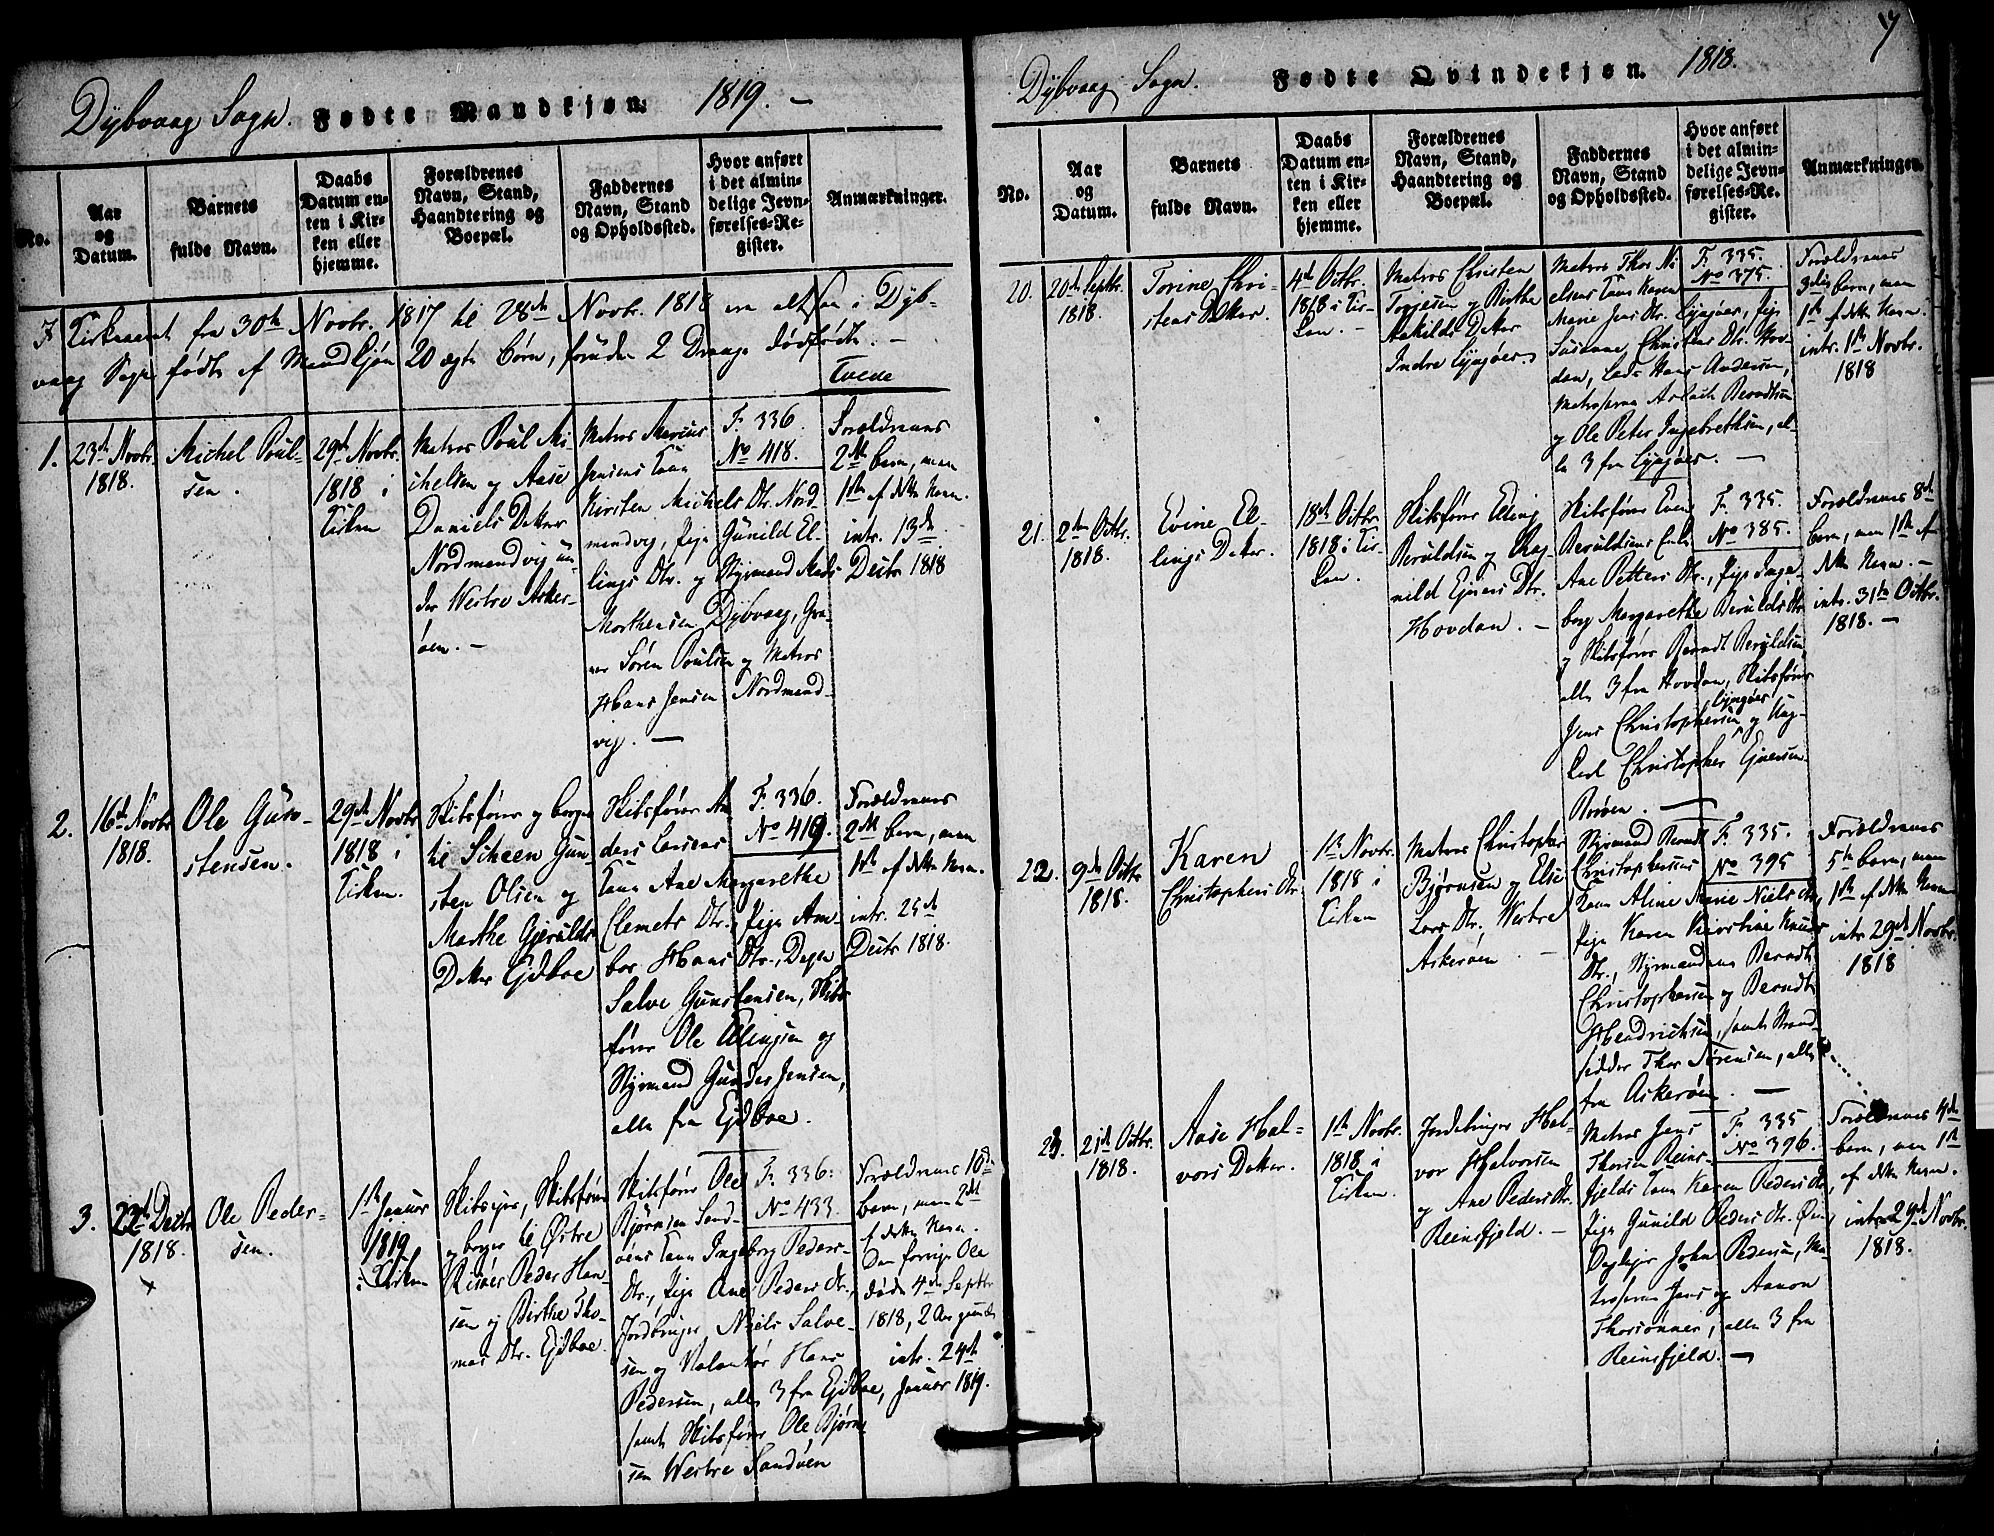 Dybvaag Sogn. Fødte Mandkjøn. 1819. —
No.
Aar og Datum.
Barnets fulde Navn.
Daabs Datum enten i Kirken eller hjemme.
Forældrenes Navn, Stand, Haandtering og Boepæl.
Faddernes Navn, Stand og Opholdssted.
Hvor anført i det almindelige Jevnførelses-Register.
Anmærkninger.
I Kirkeaaret fra 30te Novbr. 1817 til 28de Novbr. 1818 ere altsaa i Dyb-
vaag Sogn født af Mandkjøn 20 ægte Børn, foruden 2 Drenge dødfødte. —
Tvede
1.
23de Novbr.
1818.
Michel Poul-
sen.
29de Novbr.
1818 i
Kirken
Matros Poul Mi-
chelsen og Aase
Daniels Datter
Nordmandvig un-
der Westre Asker-
öen. —
Matros Marcus
Jensens Kone
Kirsten Michels Dtr. Nord-
mandvig, Pige Gunild El-
lings Dtr. og Styrmand Mads
Morthensen Dybvaag,
Sören Poulsen og Matros
Hans Jensen Nordmand-
vig. —
F. 336.
No 418.
Forældrenes
2det barn, men
1ste af dette Navn.
intr. 13de
Decbr 1818
2.
16de Novbr
1818.
Ole Gun-
stensen.
29de Novbr
1818 i
Kirken.
Skibsfører og borger
til Scheen Gun-
sten Olsen og
Marthe Gjerulds
Datter Ejdboe
Skibsfører An-
ders Larsens
Kone Ane Margarethe
Clemets Dtr., Pige An-
bor Hans Dtr.,
Salve Gunstensen, Skibs-
fører Ole Ellingsen og
Styrmand Gunder Jensen,
alle fra Ejdboe.
F. 336.
No 419.
Forældrenes
2det barn, men
1ste af dette Navn.
intr. 25de
Decbr 1818.
3.
22de Decbr
1818.
Ole Peder-
sen.
1ste Januar
1819
i Kirken
Skibsejer, Skibsfører
og borger til Østre
Risöer Peder Han-
sen og Birthe Tho-
mas Dtr. Ejdboe.
Skibsfører Ole
Bjørnsen Sand-
öens Kone Ingeborg Peders
Dtr., Pige Ane Peders Dtr.,
Jordbruger Niels Salve-
sen og Hans
Pedersen, alle 3 fra Ejdboe,
samt Skibsfører Ole Bjørn-
sen Westre Sandöen
F. 336.
No 433.
Forældrenes 10de
barn, men 2det
af dette Navn.
Den forrige Ole
døde 4de Septbr
1818, 2 Aar gammel
intr. 24de
Januar 1819.
7
Dybvaag Sogn. Fødte Qvindekjøn. 1818.
No.
Aar og Datum.
Barnets fulde Navn.
Daabs Datum enten i Kirken eller hjemme.
Forældrenes Navn, Stand, Haandtering og Boepæl.
Faddernes Navn, Stand og Opholdssted.
Hvor anført i det almindelige Jevnførelses-Register.
Anmærkninger.
20.
20de Septbr.
1818.
Torine Chri-
stens Datter.
4de Octbr.
1818 i Kir-
ken. —
Matros Christen
Torjesen og Birthe
Aschilds Datter
Indre Lyngöer.
Matros Thor Ni-
elsens Kone Karen
Marie Jens Dtr. Lyngöer, Pige
Susanne Christens Dtr. Hov-
dan, Hans Andersen,
Matroserne Aslach Berndtsen
og Ole Peter Ingebrethsen, al-
le 3 fra Lyngöer. —
F. 335.
No 375.
Forældrenes
3die barn, men
1ste af dette Navn.
intr. 1ste Novbr.
1818
21.
2den Octbr.
1818.
Evine El-
lings Datter.
18de Octbr.
1818 i Kir-
ken.
Skibsfører Elling
Beruldsen og Rag-
nild Ejners Dtr.
Hovdan. —
Skibsfører Even
Beruldsens Enke
Ane Petters Dtr., Pige Inge-
borg Margarethe Berulds Dtr.
og Skibsfører Berndt Beruldsen,
alle 3 fra Hovdan, Skibsfører
Jens Christophersen Lyngöer, og Ung-
karl Christopher Ejnersen
Boröen. —
F. 335.
No 385.
Forældrenes 8de
barn, men 1ste af
dette Navn. —
intr. 31te Octbr.
1818. —
22.
9de Octbr
1818.
Karen
Christophers Dtr.
1ste Novbr.
1818 i
Kirken
Matros Christopher
Bjørnsen og Else
Lars Dtr. Westre
Askeröen —
Styrmand Berndt
Christophersens
Kone Aline Marie Niels Dtr,
Pige Karen Kirstine Knuds
Dtr., Styrmændene Berndt
Christophersen og Berndt
Hendrichsen, samt Strand-
sidder Thor Sörensen, alle
fra Askeröen. —
F. 335.
No 395
Forældrenes
5te barn, men
1ste af dette Navn
intr 29de Novbr.
1818
23.
21de Octbr.
1818.
Aase Hal-
vors Datter.
1ste Novbr.
1818 i
Kirken.
Jordebruger Hal-
vor Halvorsen
og Ane Peders Dtr.
Reinsfjeld. —
Matros Jens
Thorsen Reins-
fjelds Kone Karen Peders Dtr,
Pige Gunild Peders Dtr.
John Pedersen, Ma-
troserne Jens og Aanon
Thorsønner, alle 3 fra
Reinsfjeld. —
F. 335
No 396.
Forældrenes 4de
barn, men 1ste
af dette Navn.
intr. 29de Novbr.
1818.